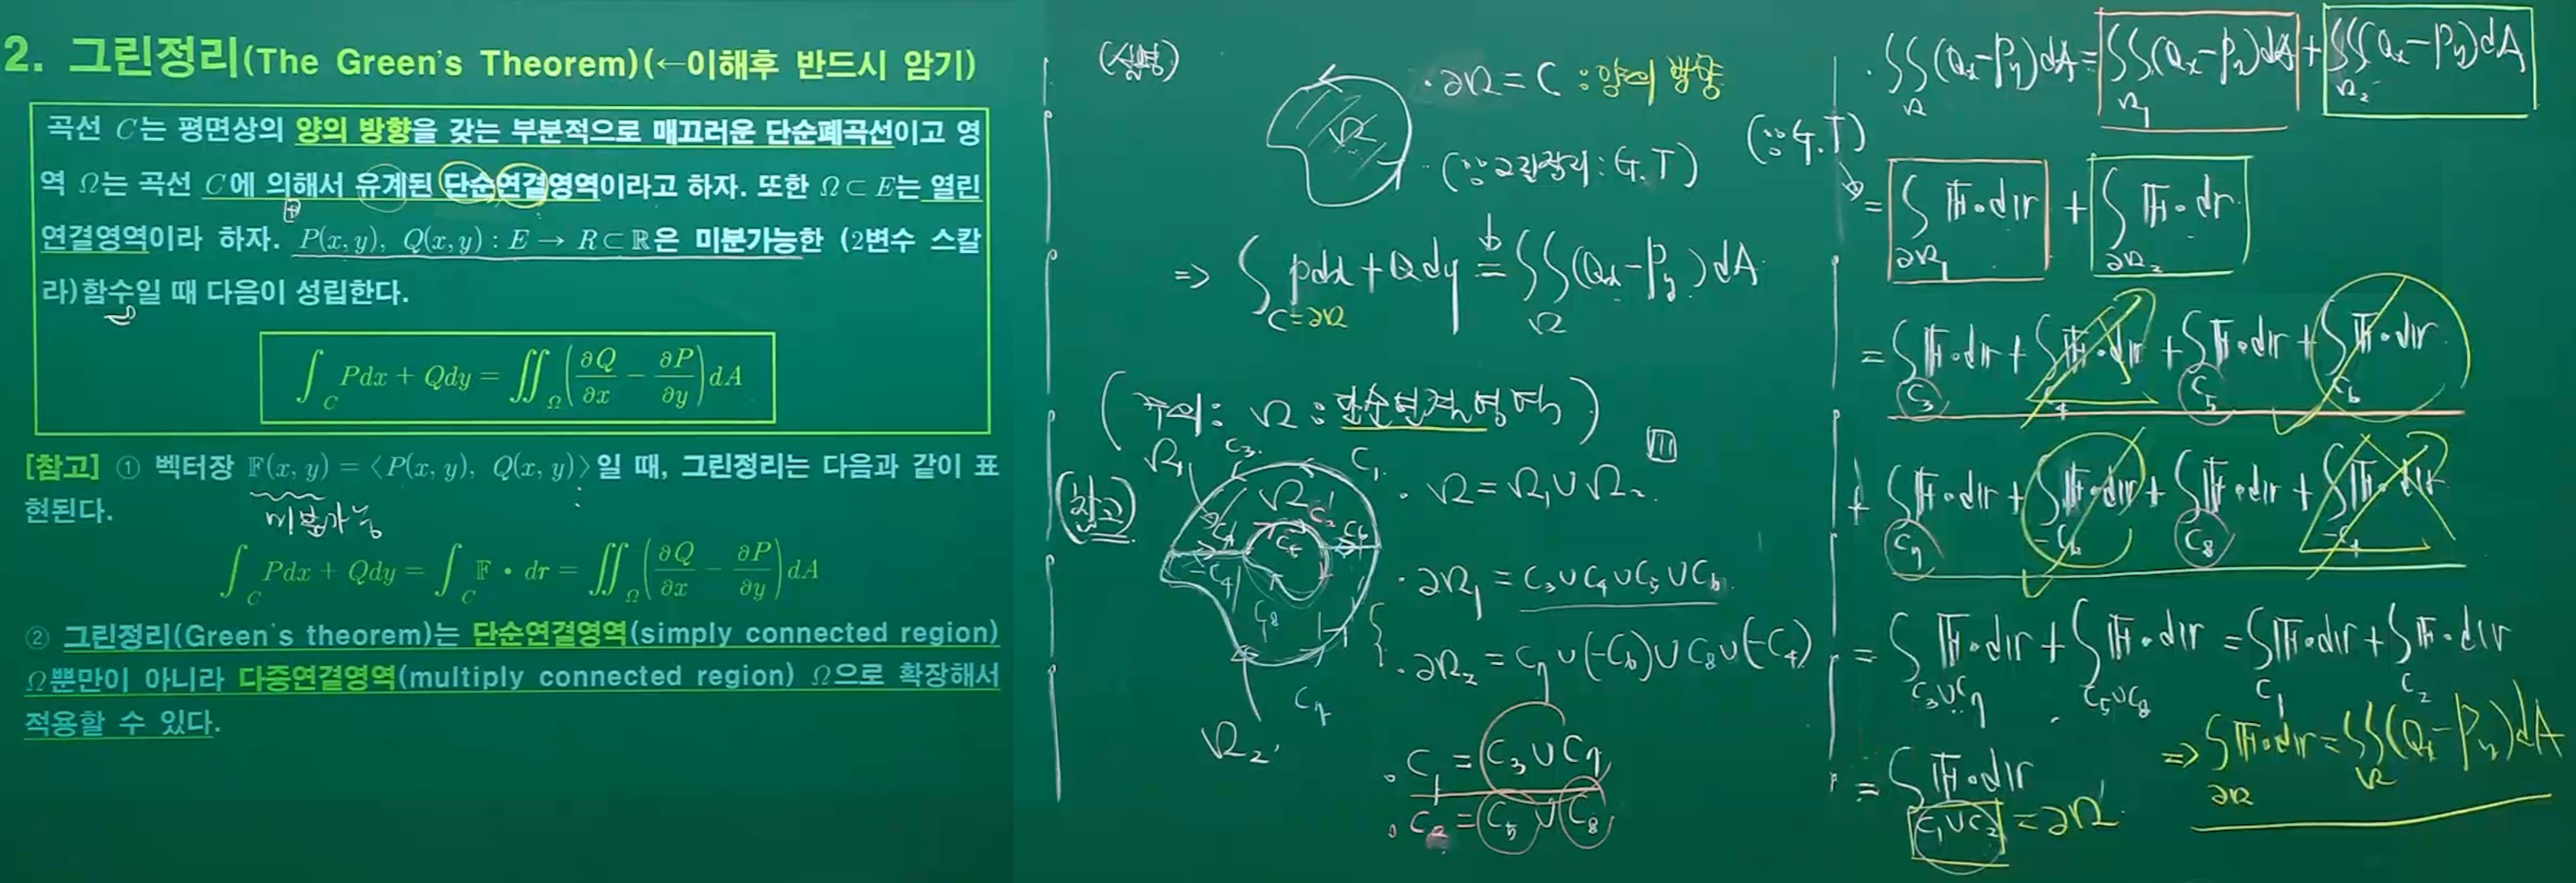 2. 그린정리(The Green's Theorem)(←이해후 반드시 암기)
곡선 C는 평면상의 양의 방향을 갖는 부분적으로 매끄러운 단순폐곡선이고 영
역 Ω는 곡선 C에 의해서 유계된 단순연결영역이라고 하자. 또한 Ω⊂E는 열린
연결영역이라 하자. P(x, y), Q(x, y) : E → R⊂ℝ은 미분가능한 (2변수 스칼
라)함수일 때 다음이 성립한다.
∫_C Pdx + Qdy = ∬_Ω (∂Q/∂x − ∂P/∂y) dA
[참고] ① 벡터장 𝔽(x, y) = ⟨P(x, y), Q(x, y)⟩일 때, 그린정리는 다음과 같이 표
현된다.
미분가능
∫_C Pdx + Qdy = ∫_C 𝔽 • dr = ∬_Ω (∂Q/∂x − ∂P/∂y) dA
② 그린정리(Green's theorem)는 단순연결영역(simply connected region)
Ω뿐만이 아니라 다중연결영역(multiply connected region) Ω으로 확장해서
적용할 수 있다.
(설명)
Ω
· ∂Ω = C : 양의 방향
(∵ 그린정리 : G.T)
⇒ ∫_{C=∂Ω} Pdx + Qdy = ∬_Ω (Qx − Py) dA
(주의 : Ω : 단순연결영역)
(참고)
Ω₁
C₃
C₁
Ω
C₂
C₄
C₅
C₆
−C₄
C₈
C₇
Ω₂
· Ω = Ω₁ ∪ Ω₂
· ∂Ω₁ = C₃ ∪ C₄ ∪ C₅ ∪ C₆
· ∂Ω₂ = C₇ ∪ (−C₆) ∪ C₈ ∪ (−C₄)
· C₁ = C₃ ∪ C₇
· C₂ = C₅ ∪ C₈
· ∬_Ω (Qx − Py) dA = ∬_Ω₁ (Qx − Py) dA + ∬_Ω₂ (Qx − Py) dA
(∵ G.T)
= ∫_∂Ω₁ 𝔽 • dr + ∫_∂Ω₂ 𝔽 • dr
= ∫_C₃ 𝔽 • dr + ∫_C₄ 𝔽 • dr + ∫_C₅ 𝔽 • dr + ∫_C₆ 𝔽 • dr
+ ∫_C₇ 𝔽 • dr + ∫_−C₆ 𝔽 • dr + ∫_C₈ 𝔽 • dr + ∫_−C₄ 𝔽 • dr
= ∫_C₃∪C₇ 𝔽 • dr + ∫_C₅∪C₈ 𝔽 • dr = ∫_C₁ 𝔽 • dr + ∫_C₂ 𝔽 • dr
= ∫_C₁∪C₂ 𝔽 • dr
C₁∪C₂ = ∂Ω
⇒ ∫_∂Ω 𝔽 • dr = ∬_Ω (Qx − Py) dA